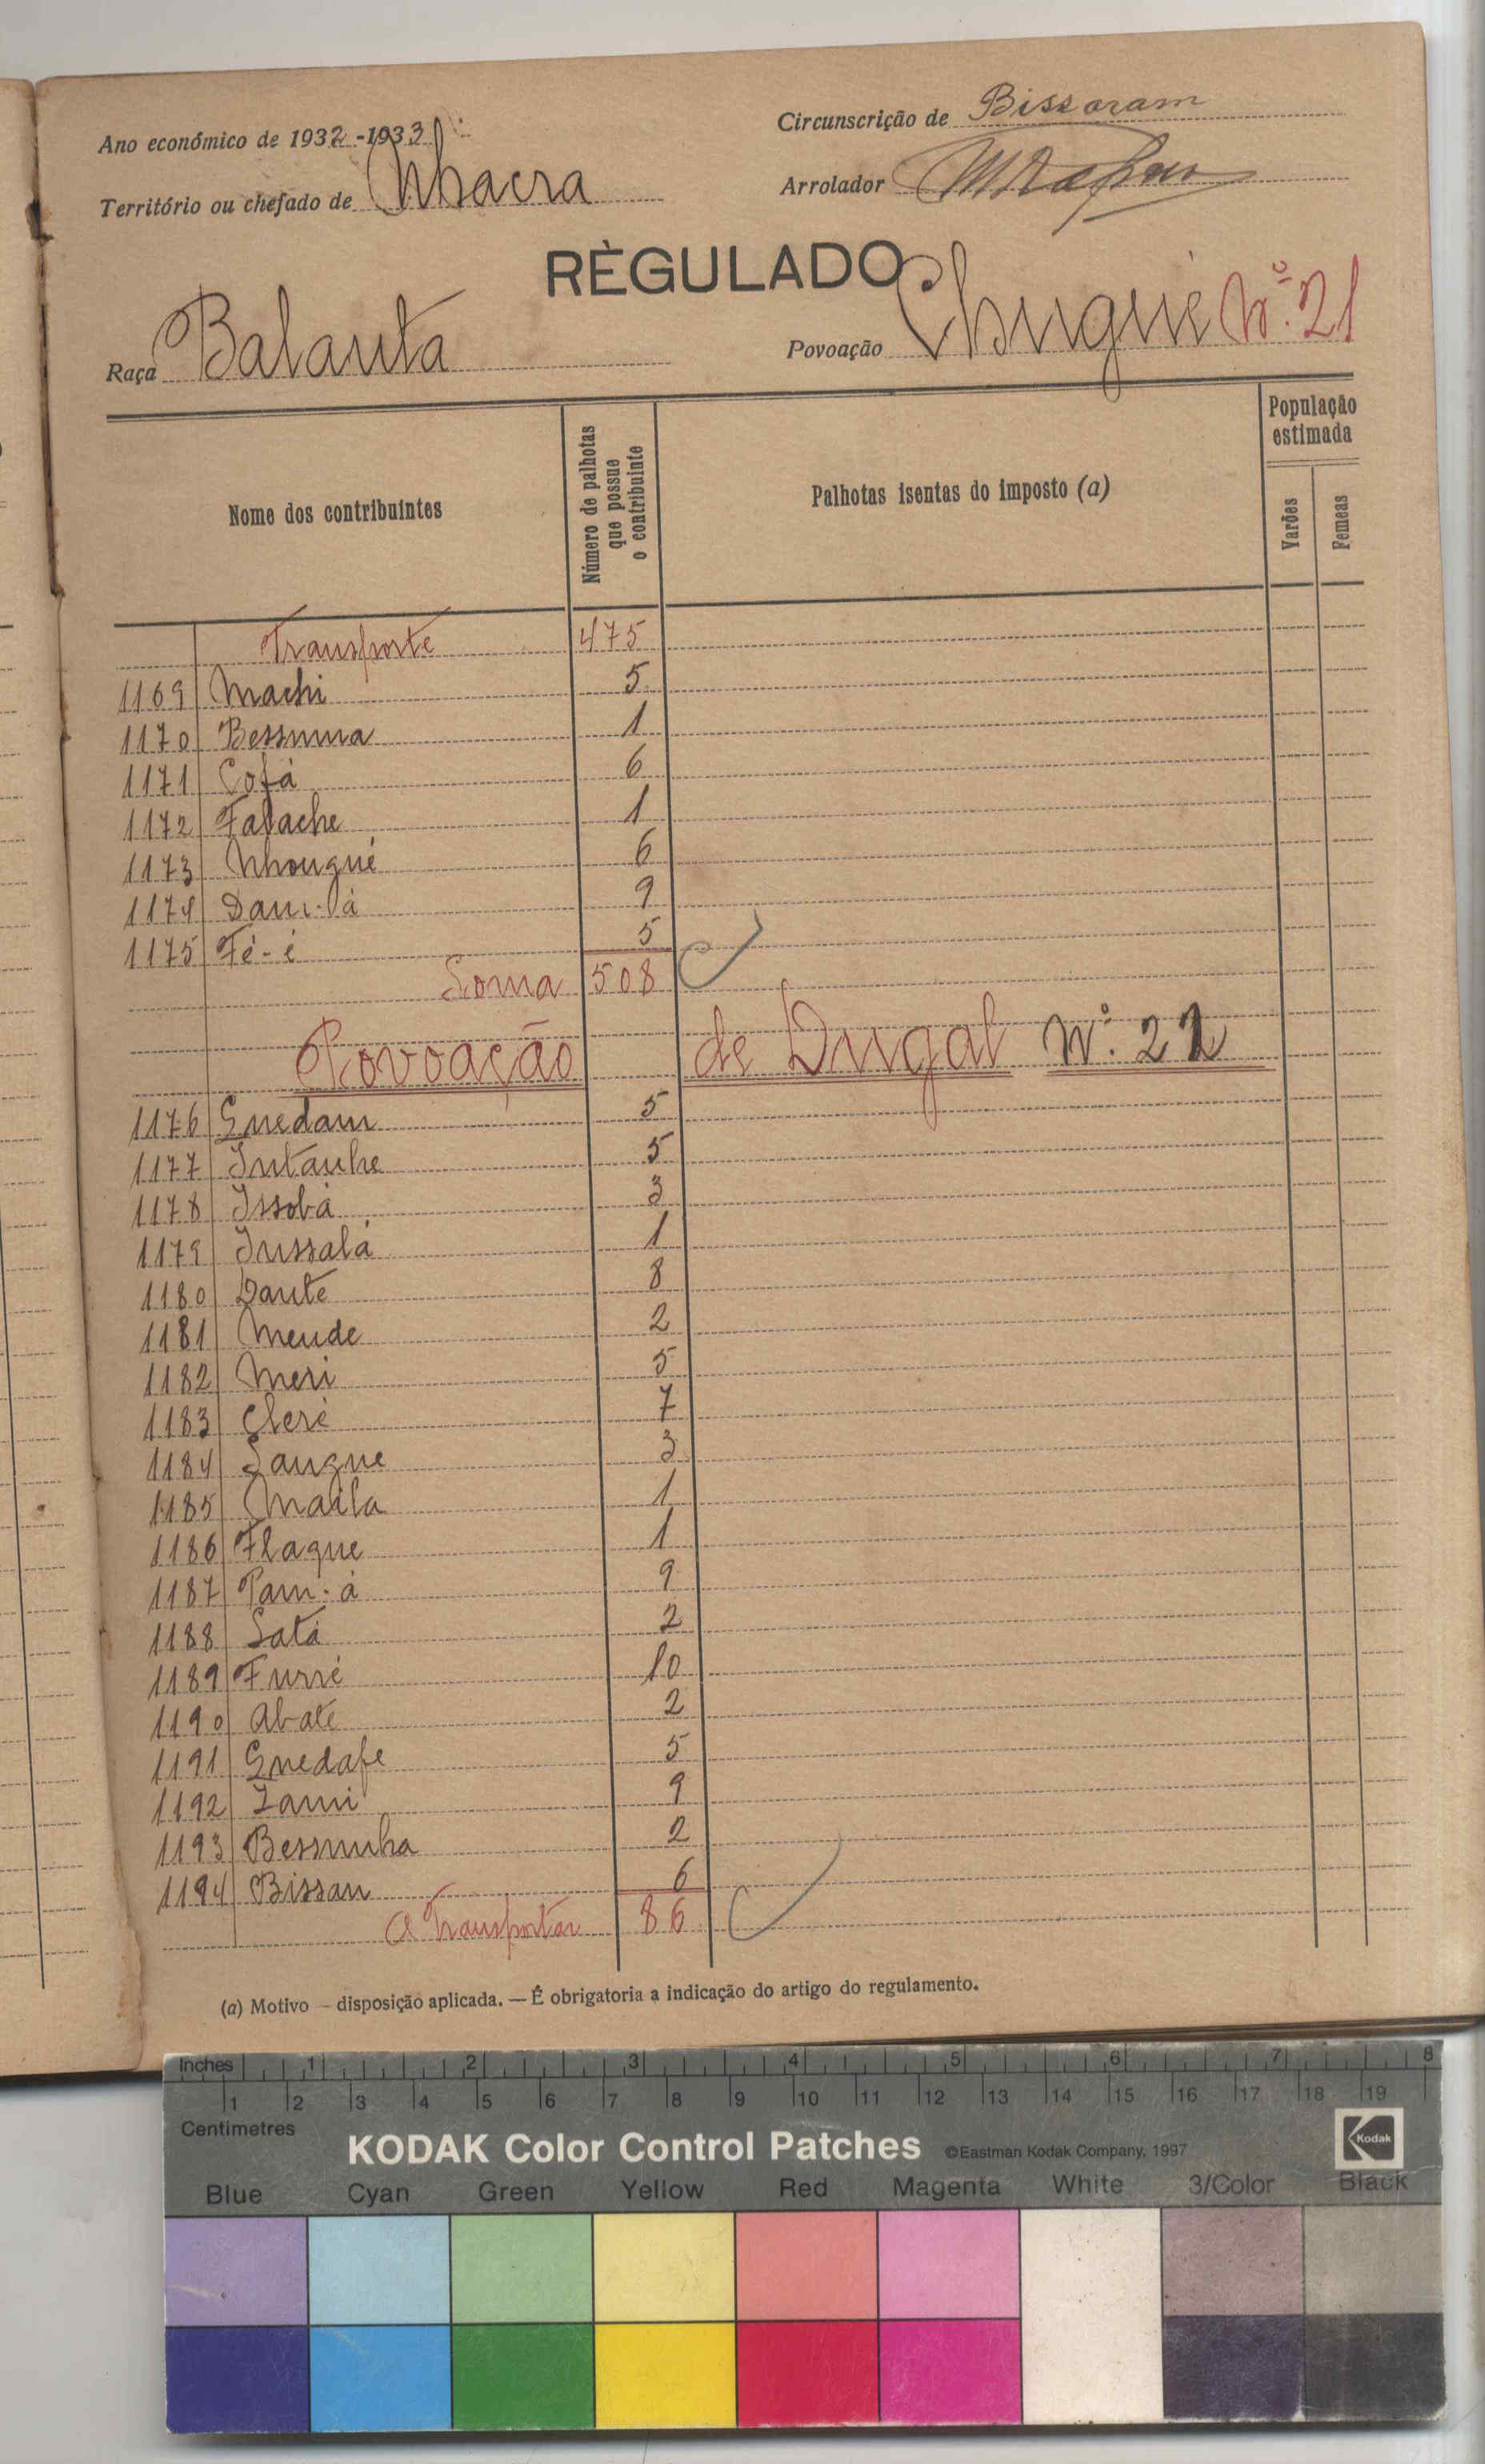 Ano económico de 1932-1933
Circunscrição de Bissoram
Território ou chefado de Nhacra
Arrolador
RÈGULADO
Raça Balanta
Povoação Chugué Nº. 21
Nome dos contribuintes
Número de palhotas que possue o contribuinte
Palhotas isentas do imposto (a)
População estimada
Varões
Femeas
Transporte 475
1169 Machi 5
1170 Bessuma 1
1171 Cofá 6
1172 Falache 1
1173 Nhongué 6
1174 Dam-lá 9
1175 Fé-é 5
Soma 508
Povoação de Dugal Nº. 22
1176 Guedam 5
1177 Intanhe 5
1178 Issobá 3
1179 Jussalá 1
1180 Dante 8
1181 Mende 2
1182 Meri 5
1183 Cleré 7
1184 Sangue 3
1185 Maila 1
1186 Flaque 1
1187 Pam-á 9
1188 Satá 2
1189 Furré 10
1190 Abate 2
1191 Guedafe 5
1192 Zami 9
1193 Bessunha 2
1194 Bissan 6
A Transportar 86
(a) Motivo — disposição aplicada. — É obrigatoria a indicação do artigo do regulamento.
Inches 1 2 3 4 5 6 7 8
1 2 3 4 5 6 7 8 9 10 11 12 13 14 15 16 17 18 19
Centimetres
KODAK Color Control Patches ©Eastman Kodak Company, 1997 Kodak
Blue Cyan Green Yellow Red Magenta White 3/Color Black